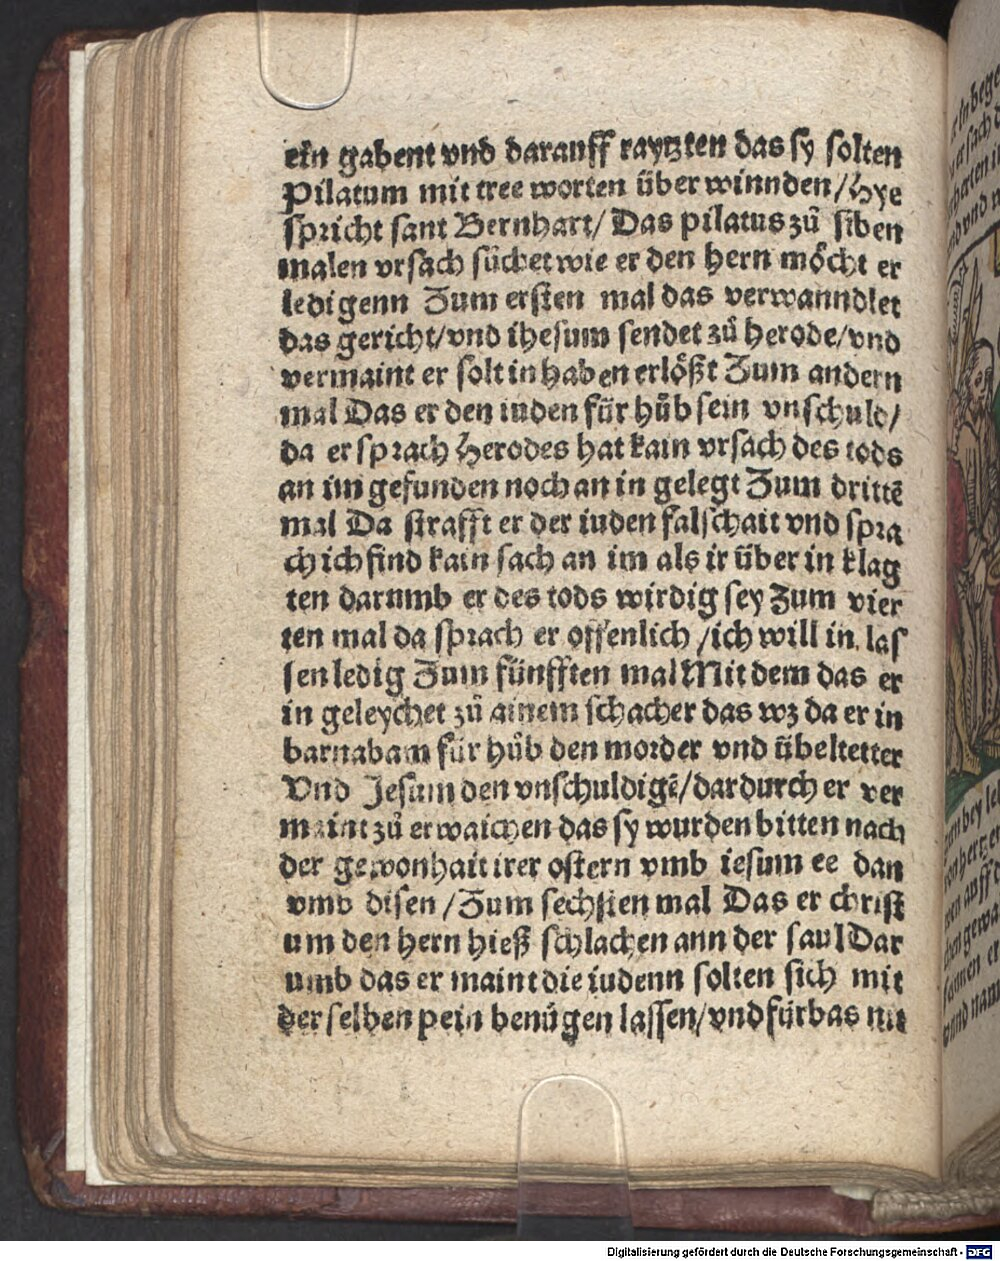 ein gabent vnd darauff raytzten das sy solten
Pilatum mit tree worten über winnden/Hye
spricht sant Bernhart/Das pilatus zů siben
malen vrsach sůchet wie er den hern möcht er
ledigenn Zum ersten mal das verwanndlet
das gericht/vnd ihesum sendet zů Herode/vnd
vermaint er solt in haben erlößt Zum andern
mal Das er den iuden für hůb sein vnschuld/
da er sprach Herodes hat kain vrsach des tods
an im gefunden noch an in gelegt Zum drittē
mal Da strafft er der iuden falschait vnd spra
ch ich find kain sach an im als ir über in klag
ten darumb er des tods wirdig sey Zum vier
ten mal da sprach er offenlich/ich will in las
sen ledig Zum fünfften mal Mit dem das er
in geleychet zů ainem schacher das wz da er in
barnabam für hůb den morder vnd übeltetter
Vnd Jesum den vnschuldigē/dardurch er ver
maint zů erwaichen das sy wurden bitten nach
der gewonhait irer ostern vmb iesum ee dan
vmb disen/Zum sechsten mal Das er christ
um den hern hieß schlachen ann der saul Dar
umb das er maint die iudenn solten sich mit
der selben pein benůgen lassen/vnd fürbas nit
Digitalisierung gefördert durch die Deutsche Forschungsgemeinschaft - DFG